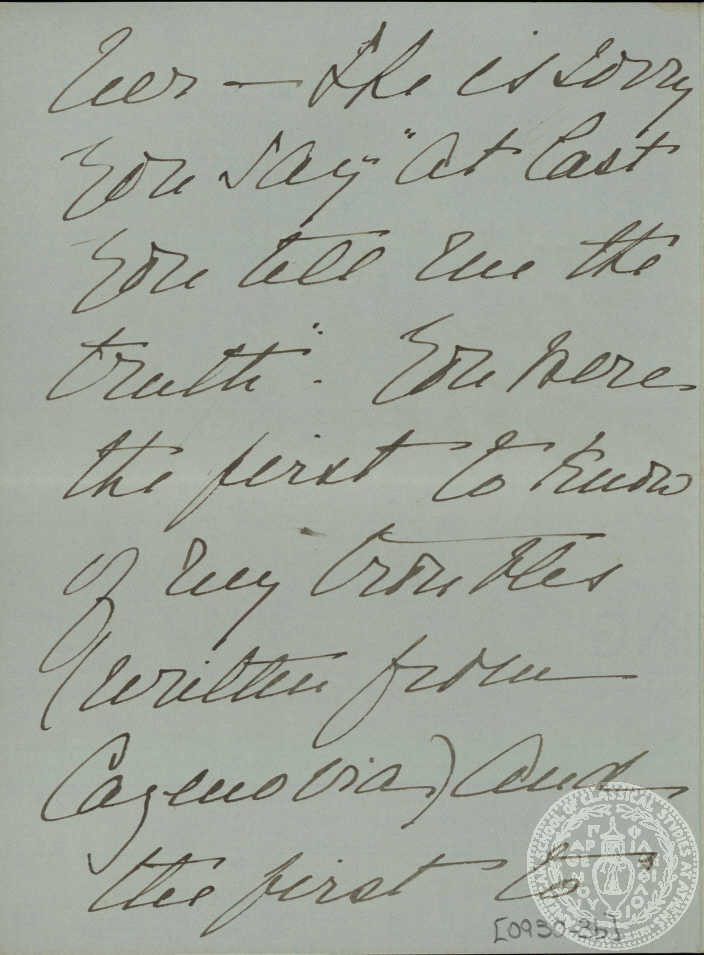 her — She is sorry
you say "at last
you tell me the
truth". You were
the first to know
of my troubles
(written from
Cazenovia) and
the first to
[0930-3b]
AMERICAN SCHOOL OF CLASSICAL STUDIES AT ATHENS